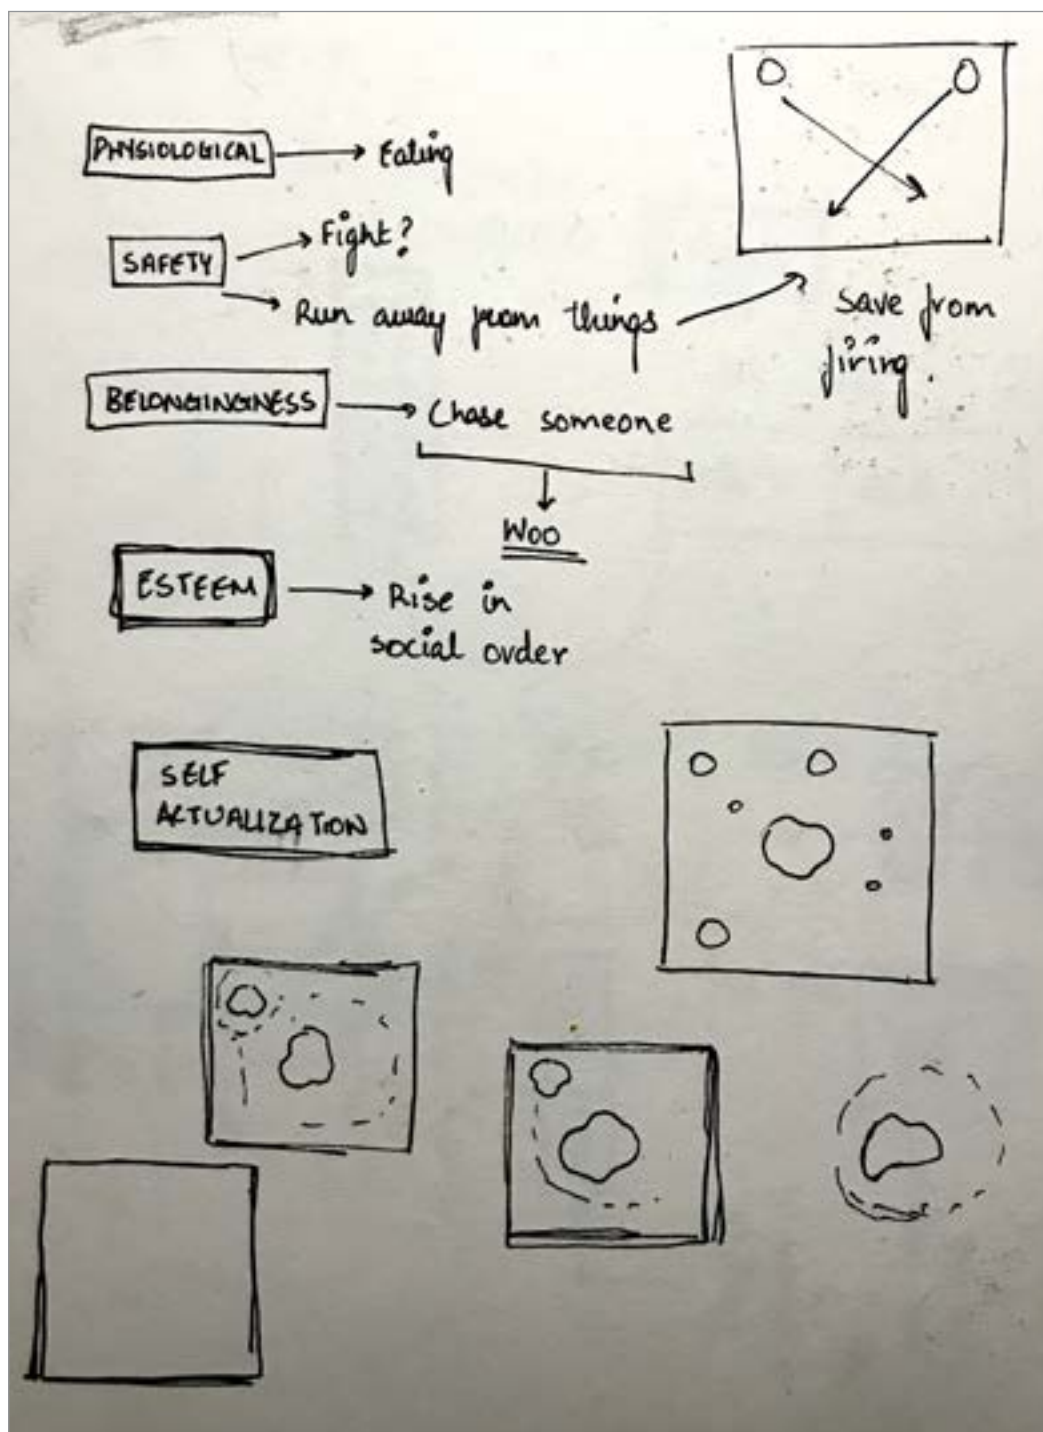 PHYSIOLOGICAL → Eating
SAFETY → Fight?
→ Run away from things → Save from
firing.
BELONGINGNESS → Chase someone
Woo
ESTEEM → Rise in
social order
SELF
ACTUALIZATION